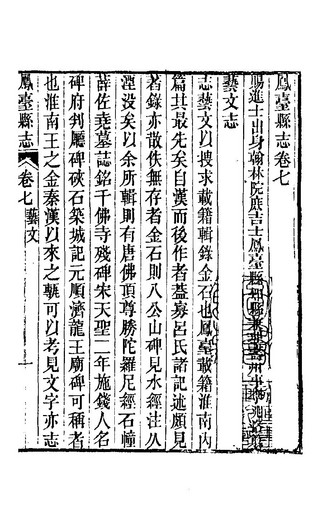 鳳臺縣志卷七
賜進士出身翰林院庶吉士鳳臺縣知縣兼理壽州
藝文志
志藝文以搜求載籍輯錄金石也鳳臺載籍淮南內
篇其最先矣自漢而後作者葢寡呂氏諸記述頗見
著錄亦散佚無存者金石則八公山碑見水經注久
湮没矣以余所輯則有唐佛頂尊勝陀羅尼經石幢
薛佐堯墓誌銘千佛寺殘碑宋天聖二年施錢人名
碑府判廳碑硤石築城記元順濟龍王廟碑可稱者
也淮南王之金秦漢以來之甎可以考見文字亦志
鳳臺縣志
卷七 藝文
一